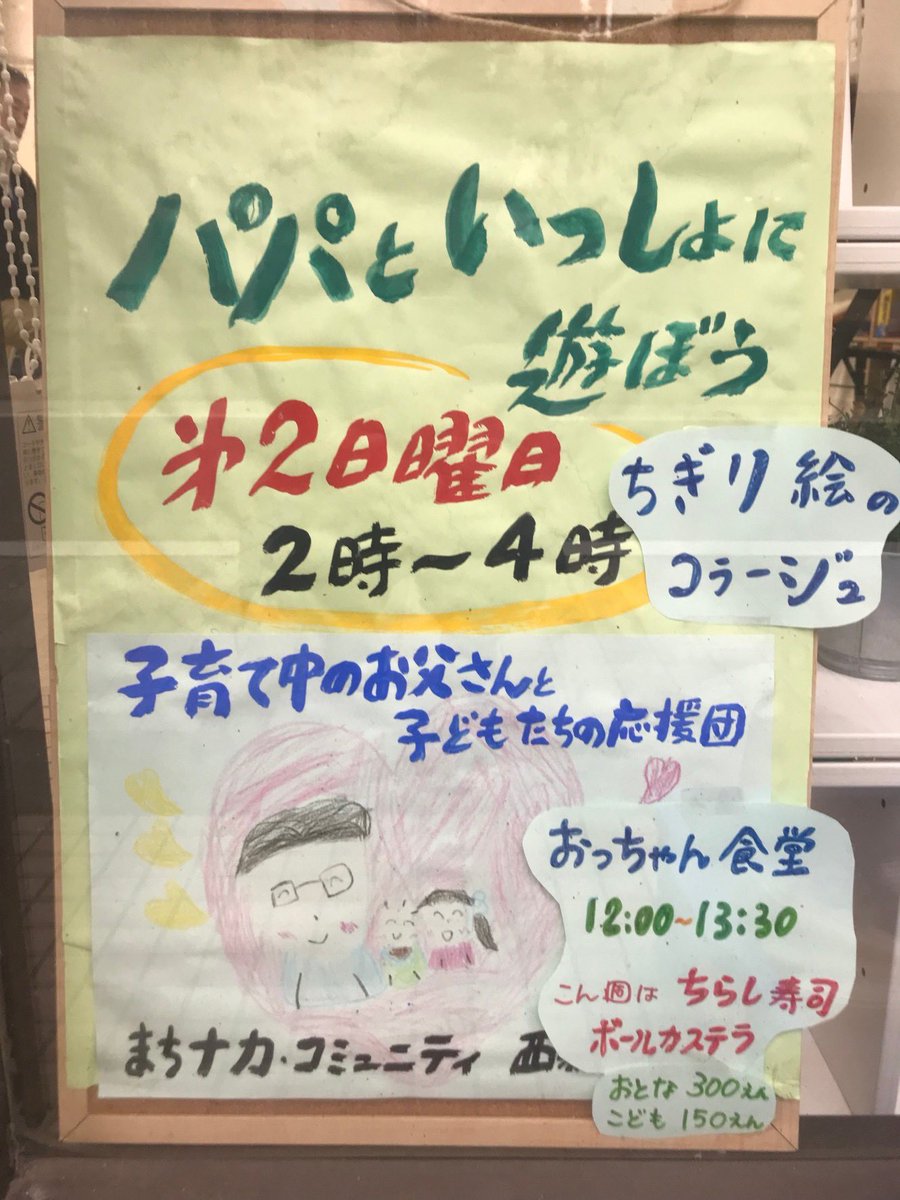 パパといっしょに
遊ぼう
第2日曜日
2時〜4時
ちぎり絵の
コラージュ
子育て中のお父さんと
子どもたちの応援団
おっちゃん食堂
12:00~13:30
こん週は ちらし寿司
ボールカステラ
まちナカ・コミュニティ 西
おとな 300えん
こども 150えん